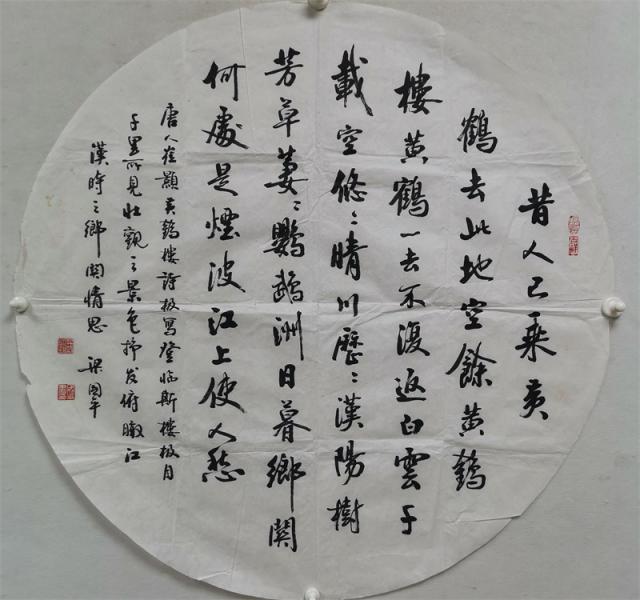 昔人已乘黄
鶴去此地空餘黄鶴
樓黄鶴一去不復返白雲千
載空悠〻晴川歷〻漢陽樹
芳草萋〻鸚鵡洲日暮鄉関
何處是煙波江上使人愁
唐人崔顥黄鶴樓詩極寫登臨斯樓極目
千里所見壯觀之景色抒发俯瞰江
漢時之鄉関情思
梁國平